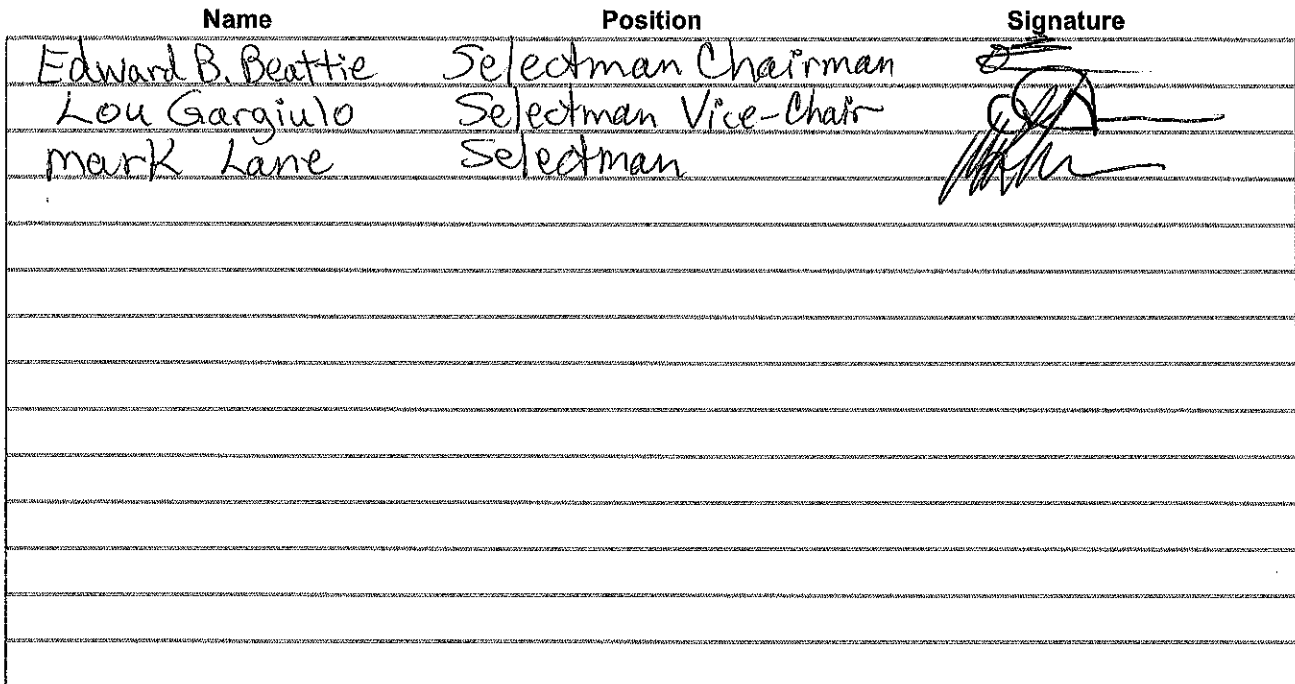 Name Position Signature
Edward B. Beattie Selectman Chairman
Lou Gargiulo Selectman Vice-Chair
Mark Lane Selectman